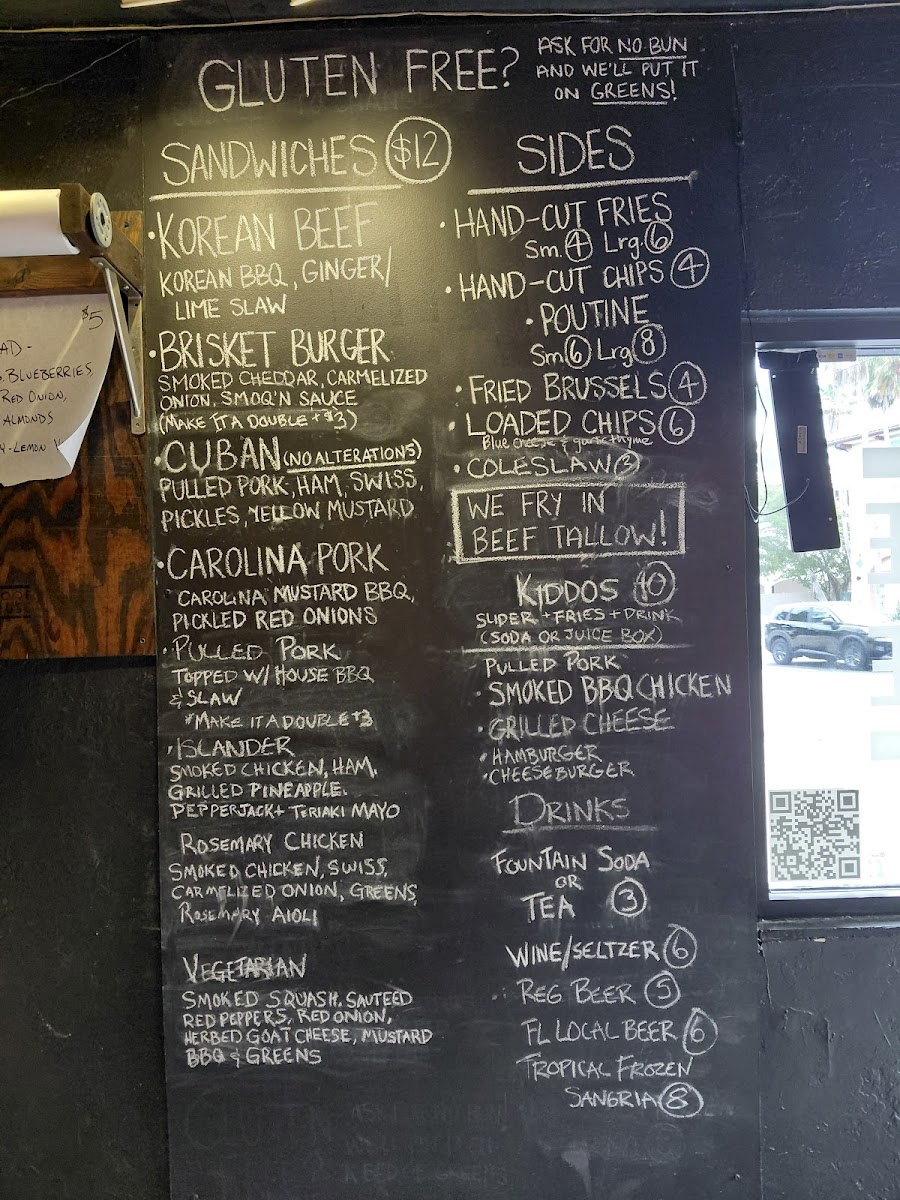 GLUTEN FREE?
ASK FOR NO BUN
AND WE'LL PUT IT
ON GREENS!
SANDWICHES $12
• KOREAN BEEF
KOREAN BBQ, GINGER/
LIME SLAW
• BRISKET BURGER
SMOKED CHEDDAR, CARMELIZED
ONION, SMOQ'N SAUCE
(MAKE IT A DOUBLE +$3)
• CUBAN (NO ALTERATIONS)
PULLED PORK, HAM, SWISS,
PICKLES, YELLOW MUSTARD
• CAROLINA PORK
CAROLINA MUSTARD BBQ,
PICKLED RED ONIONS
• PULLED PORK
TOPPED W/ HOUSE BBQ
& SLAW
*MAKE IT A DOUBLE +3
• ISLANDER
SMOKED CHICKEN, HAM,
GRILLED PINEAPPLE,
PEPPERJACK + TERIAKI MAYO
ROSEMARY CHICKEN
SMOKED CHICKEN, SWISS,
CARMELIZED ONION, GREENS,
ROSEMARY AIOLI
VEGETARIAN
SMOKED SQUASH, SAUTEED
RED PEPPERS, RED ONION,
HERBED GOAT CHEESE, MUSTARD
BBQ & GREENS
SIDES
• HAND-CUT FRIES
Sm. 4 Lrg. 6
• HAND-CUT CHIPS 4
• POUTINE
Sm 6 Lrg. 8
• FRIED BRUSSELS 4
• LOADED CHIPS 6
Blue cheese & garlic thyme
• COLESLAW 3
WE FRY IN
BEEF TALLOW!
KIDDOS 10
SLIDER + FRIES + DRINK
(SODA OR JUICE BOX)
PULLED PORK
• SMOKED BBQ CHICKEN
• GRILLED CHEESE
• HAMBURGER
• CHEESEBURGER
DRINKS
FOUNTAIN SODA
OR
TEA 3
WINE/SELTZER 6
REG BEER 5
FL LOCAL BEER 6
TROPICAL FROZEN
SANGRIA 8
$5
BLUEBERRIES
RED ONION,
ALMONDS
LEMON